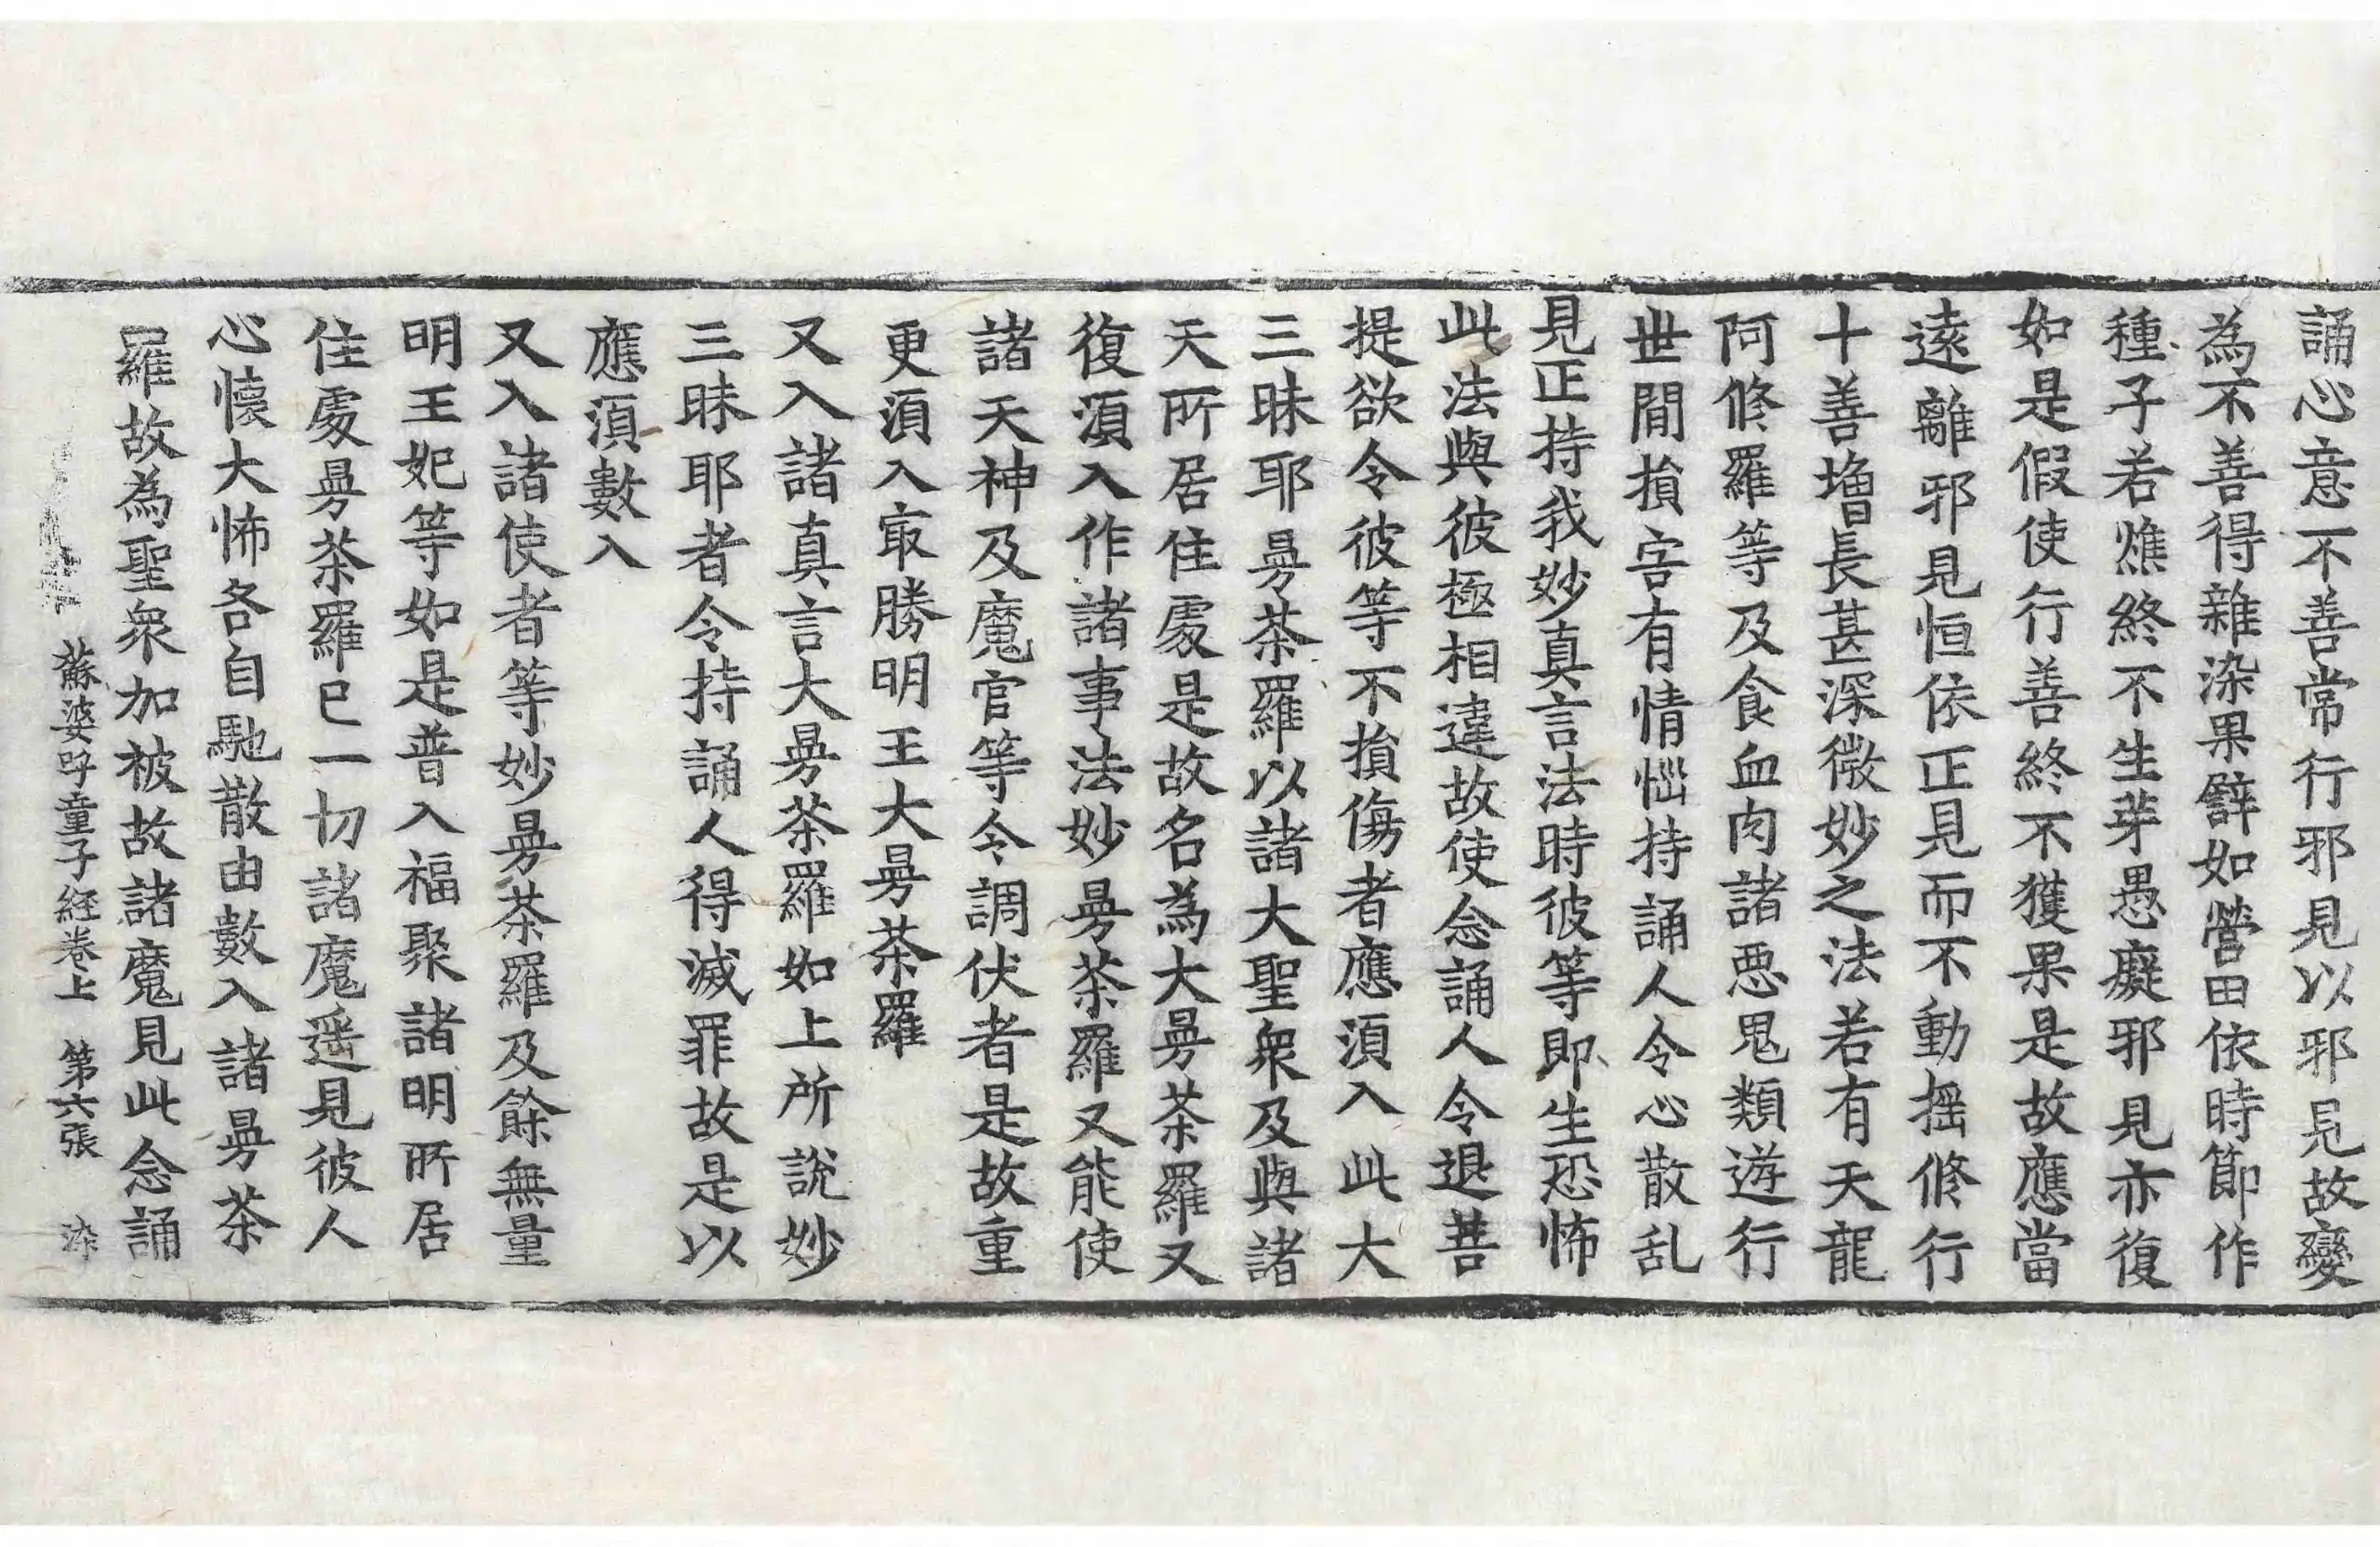 誦心意不善常行邪見以邪見故變
為不善得雜染果譬如營田依時節作
種子若燋終不生芽愚癡邪見亦復
如是假使行善終不獲果是故應當
遠離邪見恒依正見而不動搖修行
十善增長甚深微妙之法若有天龍
阿修羅等及食血肉諸悪鬼類遊行
世間損害有情惱持誦人令心散乱
見正持我妙真言法時彼等即生恐怖
此法與彼極相違故使念誦人令退菩
提欲令彼等不損傷者應湏入此大
三昧耶曼茶羅以諸大聖衆及與諸
天所居住處是故名為大曼茶羅又
復湏入作諸事法妙曼茶羅又能使
諸天神及魔官等令調伏者是故重
更湏入㝡勝明王大曼茶羅
又入諸真言大曼茶羅如上所說妙
三昧耶者令持誦人得滅罪故是以
應湏數入
又入諸使者等妙曼茶羅及餘無量
明王妃等如是普入福聚諸明所居
住處曼茶羅已一切諸魔遥見彼人
心懷大怖各自馳散由數入諸曼茶
羅故為聖衆加被故諸魔見此念誦
蘇婆呼童子経卷上 第六張 染